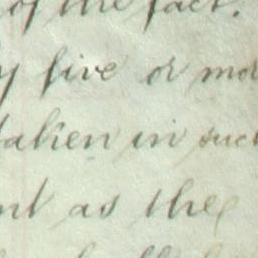 of the fact.
y five or mor
taken in suc
nt as the